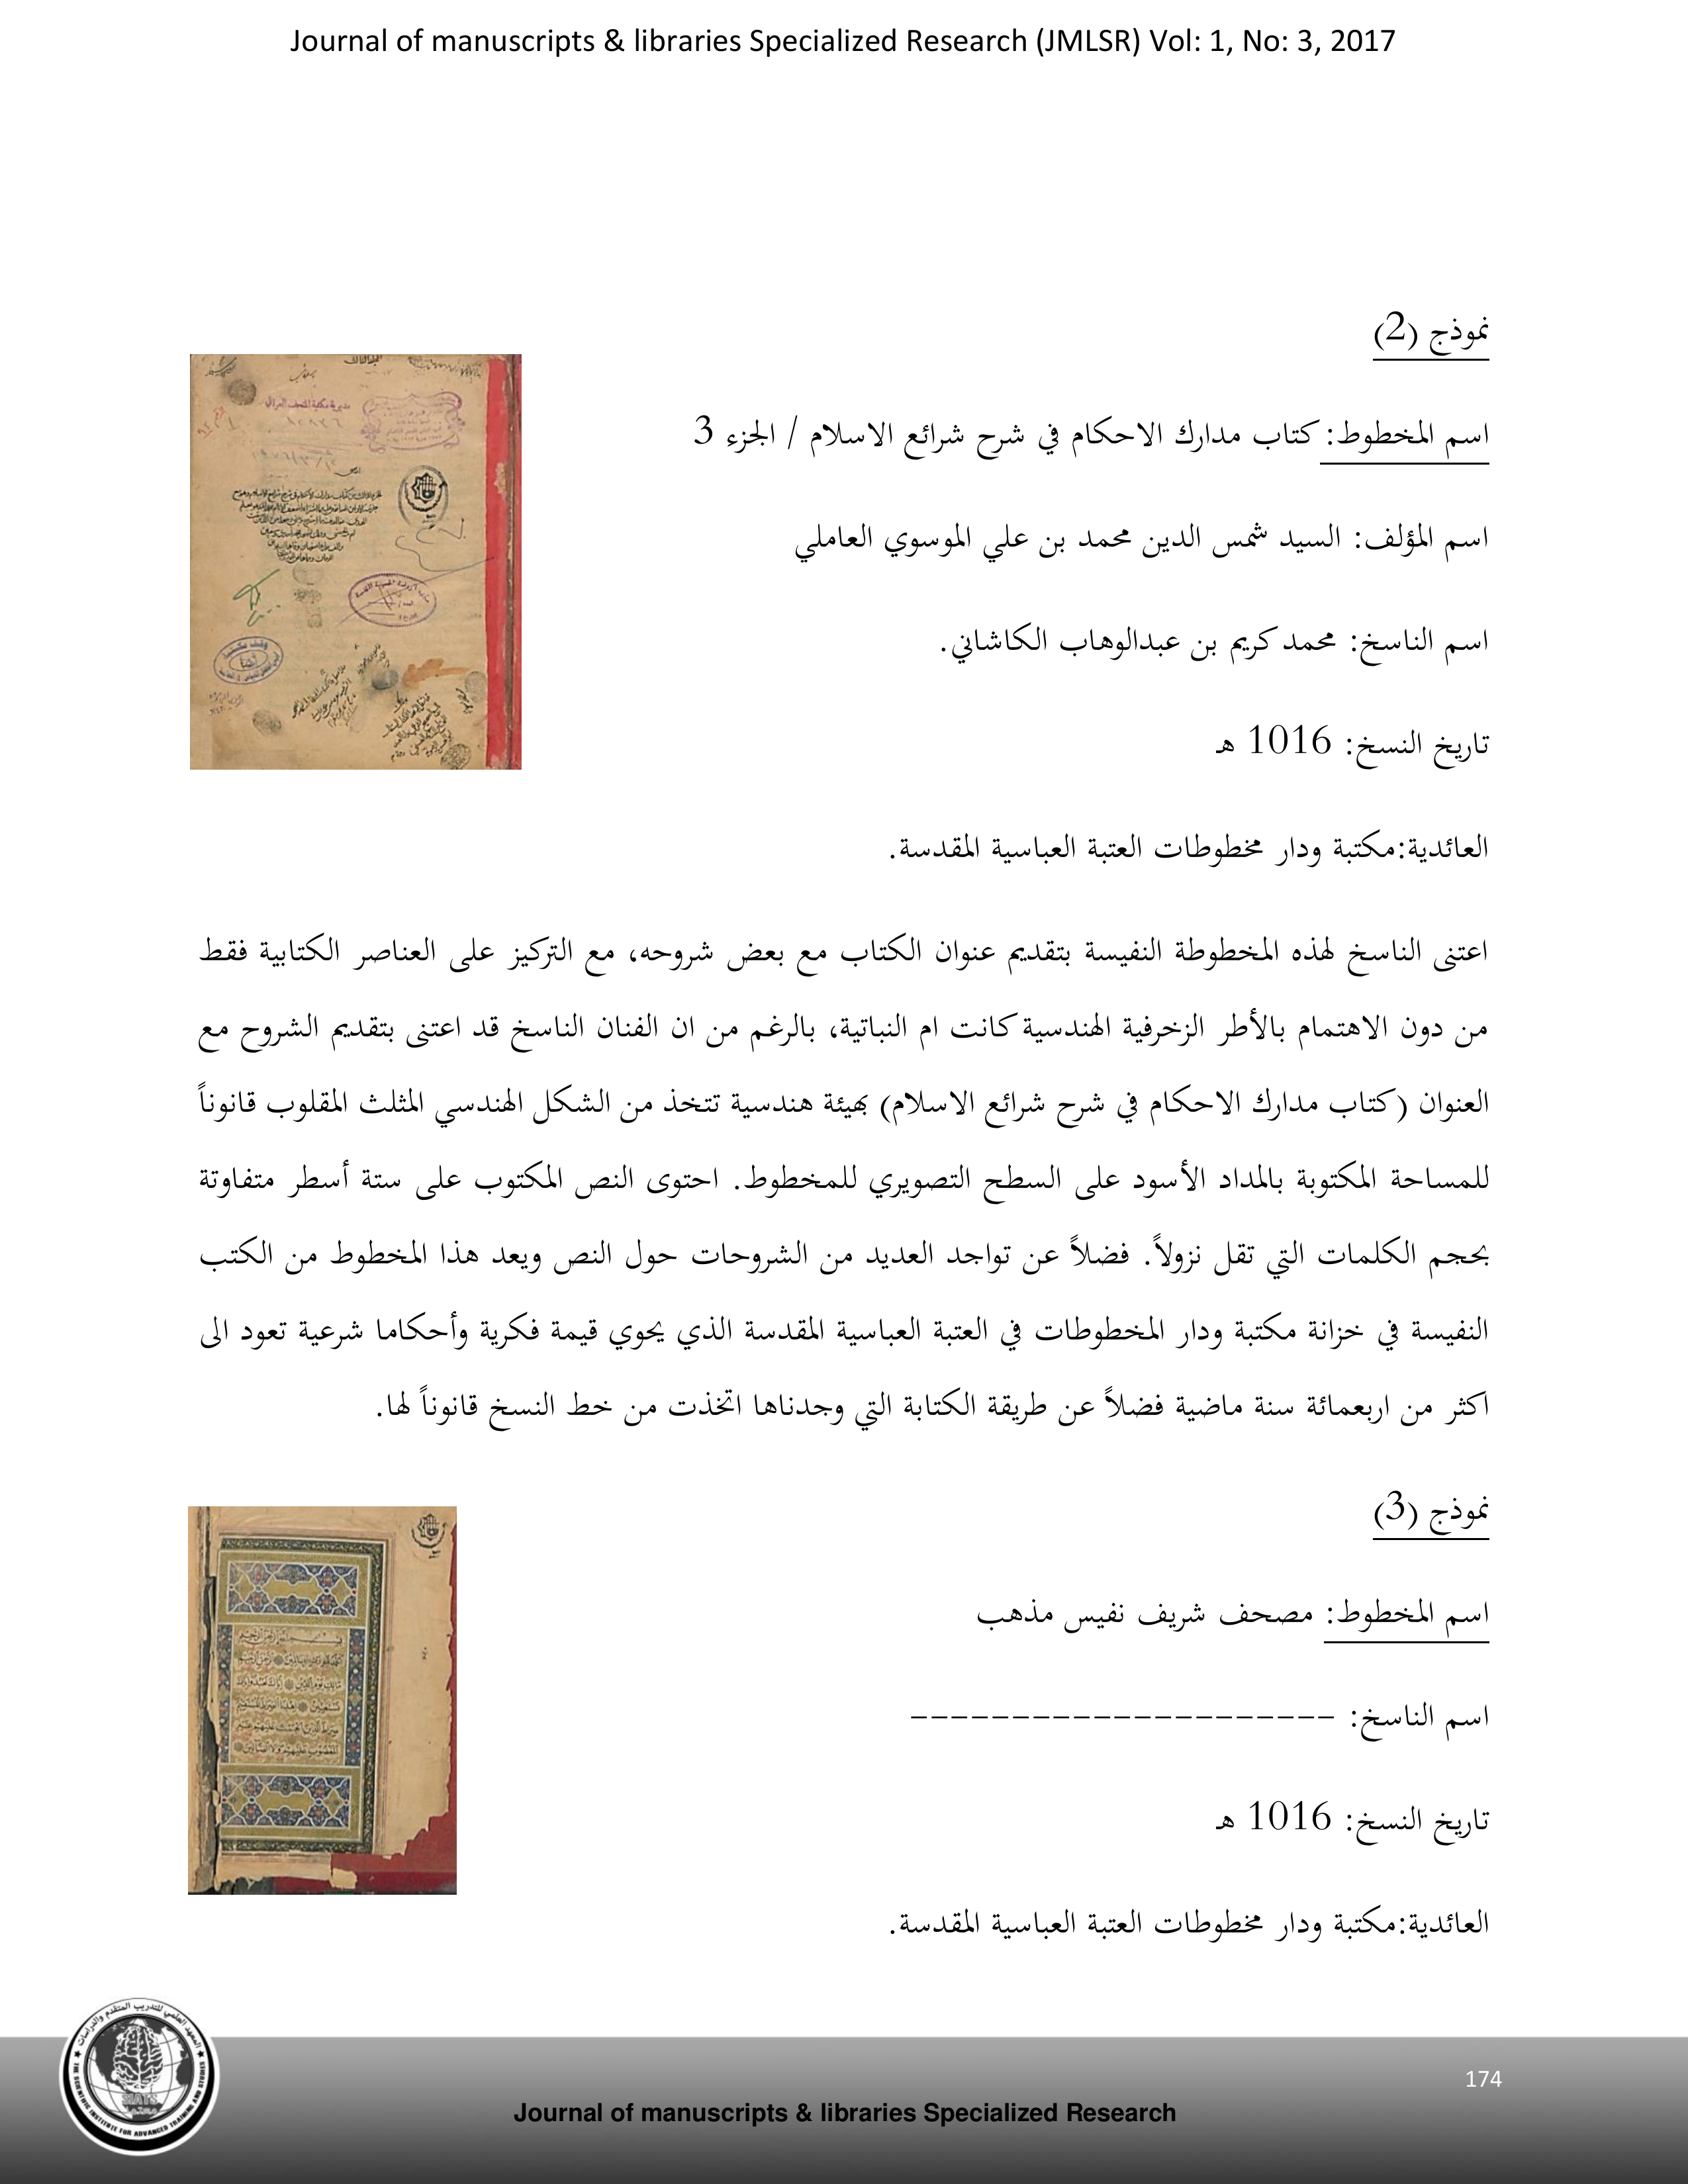 Journal of manuscripts & libraries Specialized Research (JMLSR) Vol: 1, No: 3, 2017
نموذج (2)
اسم المخطوط: كتاب مدارك الاحكام في شرح شرائع الاسلام / الجزء 3
اسم المؤلف: السيد شمس الدين محمد بن علي الموسوي العاملي
اسم الناسخ: محمد كريم بن عبدالوهاب الكاشاني.
تاريخ النسخ: 1016 هـ
العائدية:مكتبة ودار مخطوطات العتبة العباسية المقدسة.
اعتنى الناسخ لهذه المخطوطة النفيسة بتقديم عنوان الكتاب مع بعض شروحه، مع التركيز على العناصر الكتابية فقط
من دون الاهتمام بالأطر الزخرفية الهندسية كانت ام النباتية، بالرغم من ان الفنان الناسخ قد اعتنى بتقديم الشروح مع
العنوان (كتاب مدارك الاحكام في شرح شرائع الاسلام) بهيئة هندسية تتخذ من الشكل الهندسي المثلث المقلوب قانوناً
للمساحة المكتوبة بالمداد الأسود على السطح التصويري للمخطوط. احتوى النص المكتوب على ستة أسطر متفاوتة
بحجم الكلمات التي تقل نزولاً. فضلاً عن تواجد العديد من الشروحات حول النص ويعد هذا المخطوط من الكتب
النفيسة في خزانة مكتبة ودار المخطوطات في العتبة العباسية المقدسة الذي يحوي قيمة فكرية وأحكاما شرعية تعود الى
اكثر من اربعمائة سنة ماضية فضلاً عن طريقة الكتابة التي وجدناها اتخذت من خط النسخ قانوناً لها.
نموذج (3)
اسم المخطوط: مصحف شريف نفيس مذهب
اسم الناسخ: ---------------------
تاريخ النسخ: 1016 هـ
العائدية:مكتبة ودار مخطوطات العتبة العباسية المقدسة.
المعهد العلمي للتدريب المتقدم والدراسات
SIATS
THE SCIENTIFIC INSTITUTE FOR ADVANCED TRAINING AND STUDIES
174
Journal of manuscripts & libraries Specialized Research